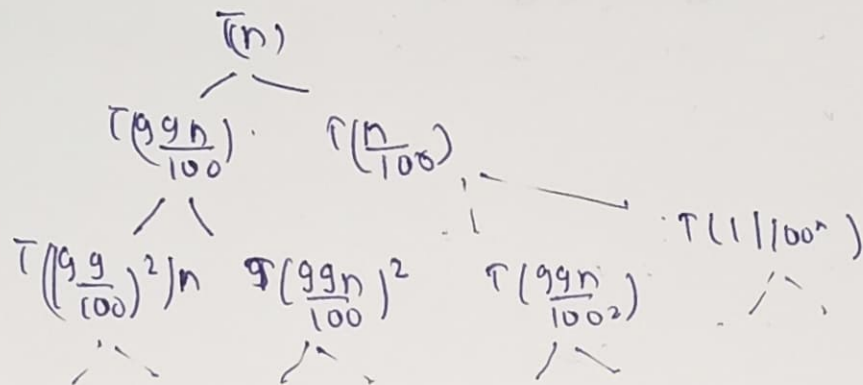 T(n)
T(99n/100) T(n/100)
T((99/100)²)n T(99n/100)² T(99n/100²) T(1/100ⁿ)